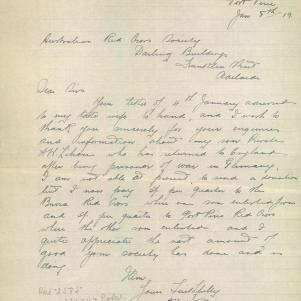 Port Pirie
Jan 8th 19
Australian Red Cross Society
Darling Buildings
Franklin Street
Adelaide
Dear Sirs
Your letter of 4th January addressed
to my late wife to hand, and I wish to
thank you sincerely for your enquiries
and information about my son Private
who has returned to England
after being prisoner of war in Germany.
I am not able at present to send a donation
but I now pay per quarter to the
Burra Red Cross where one son enlisted from
and per quarter to Port Pirie Red Cross
where the other son enlisted and I
quite appreciate the vast amount of
good your society has done and is
doing
Yours Faithfully